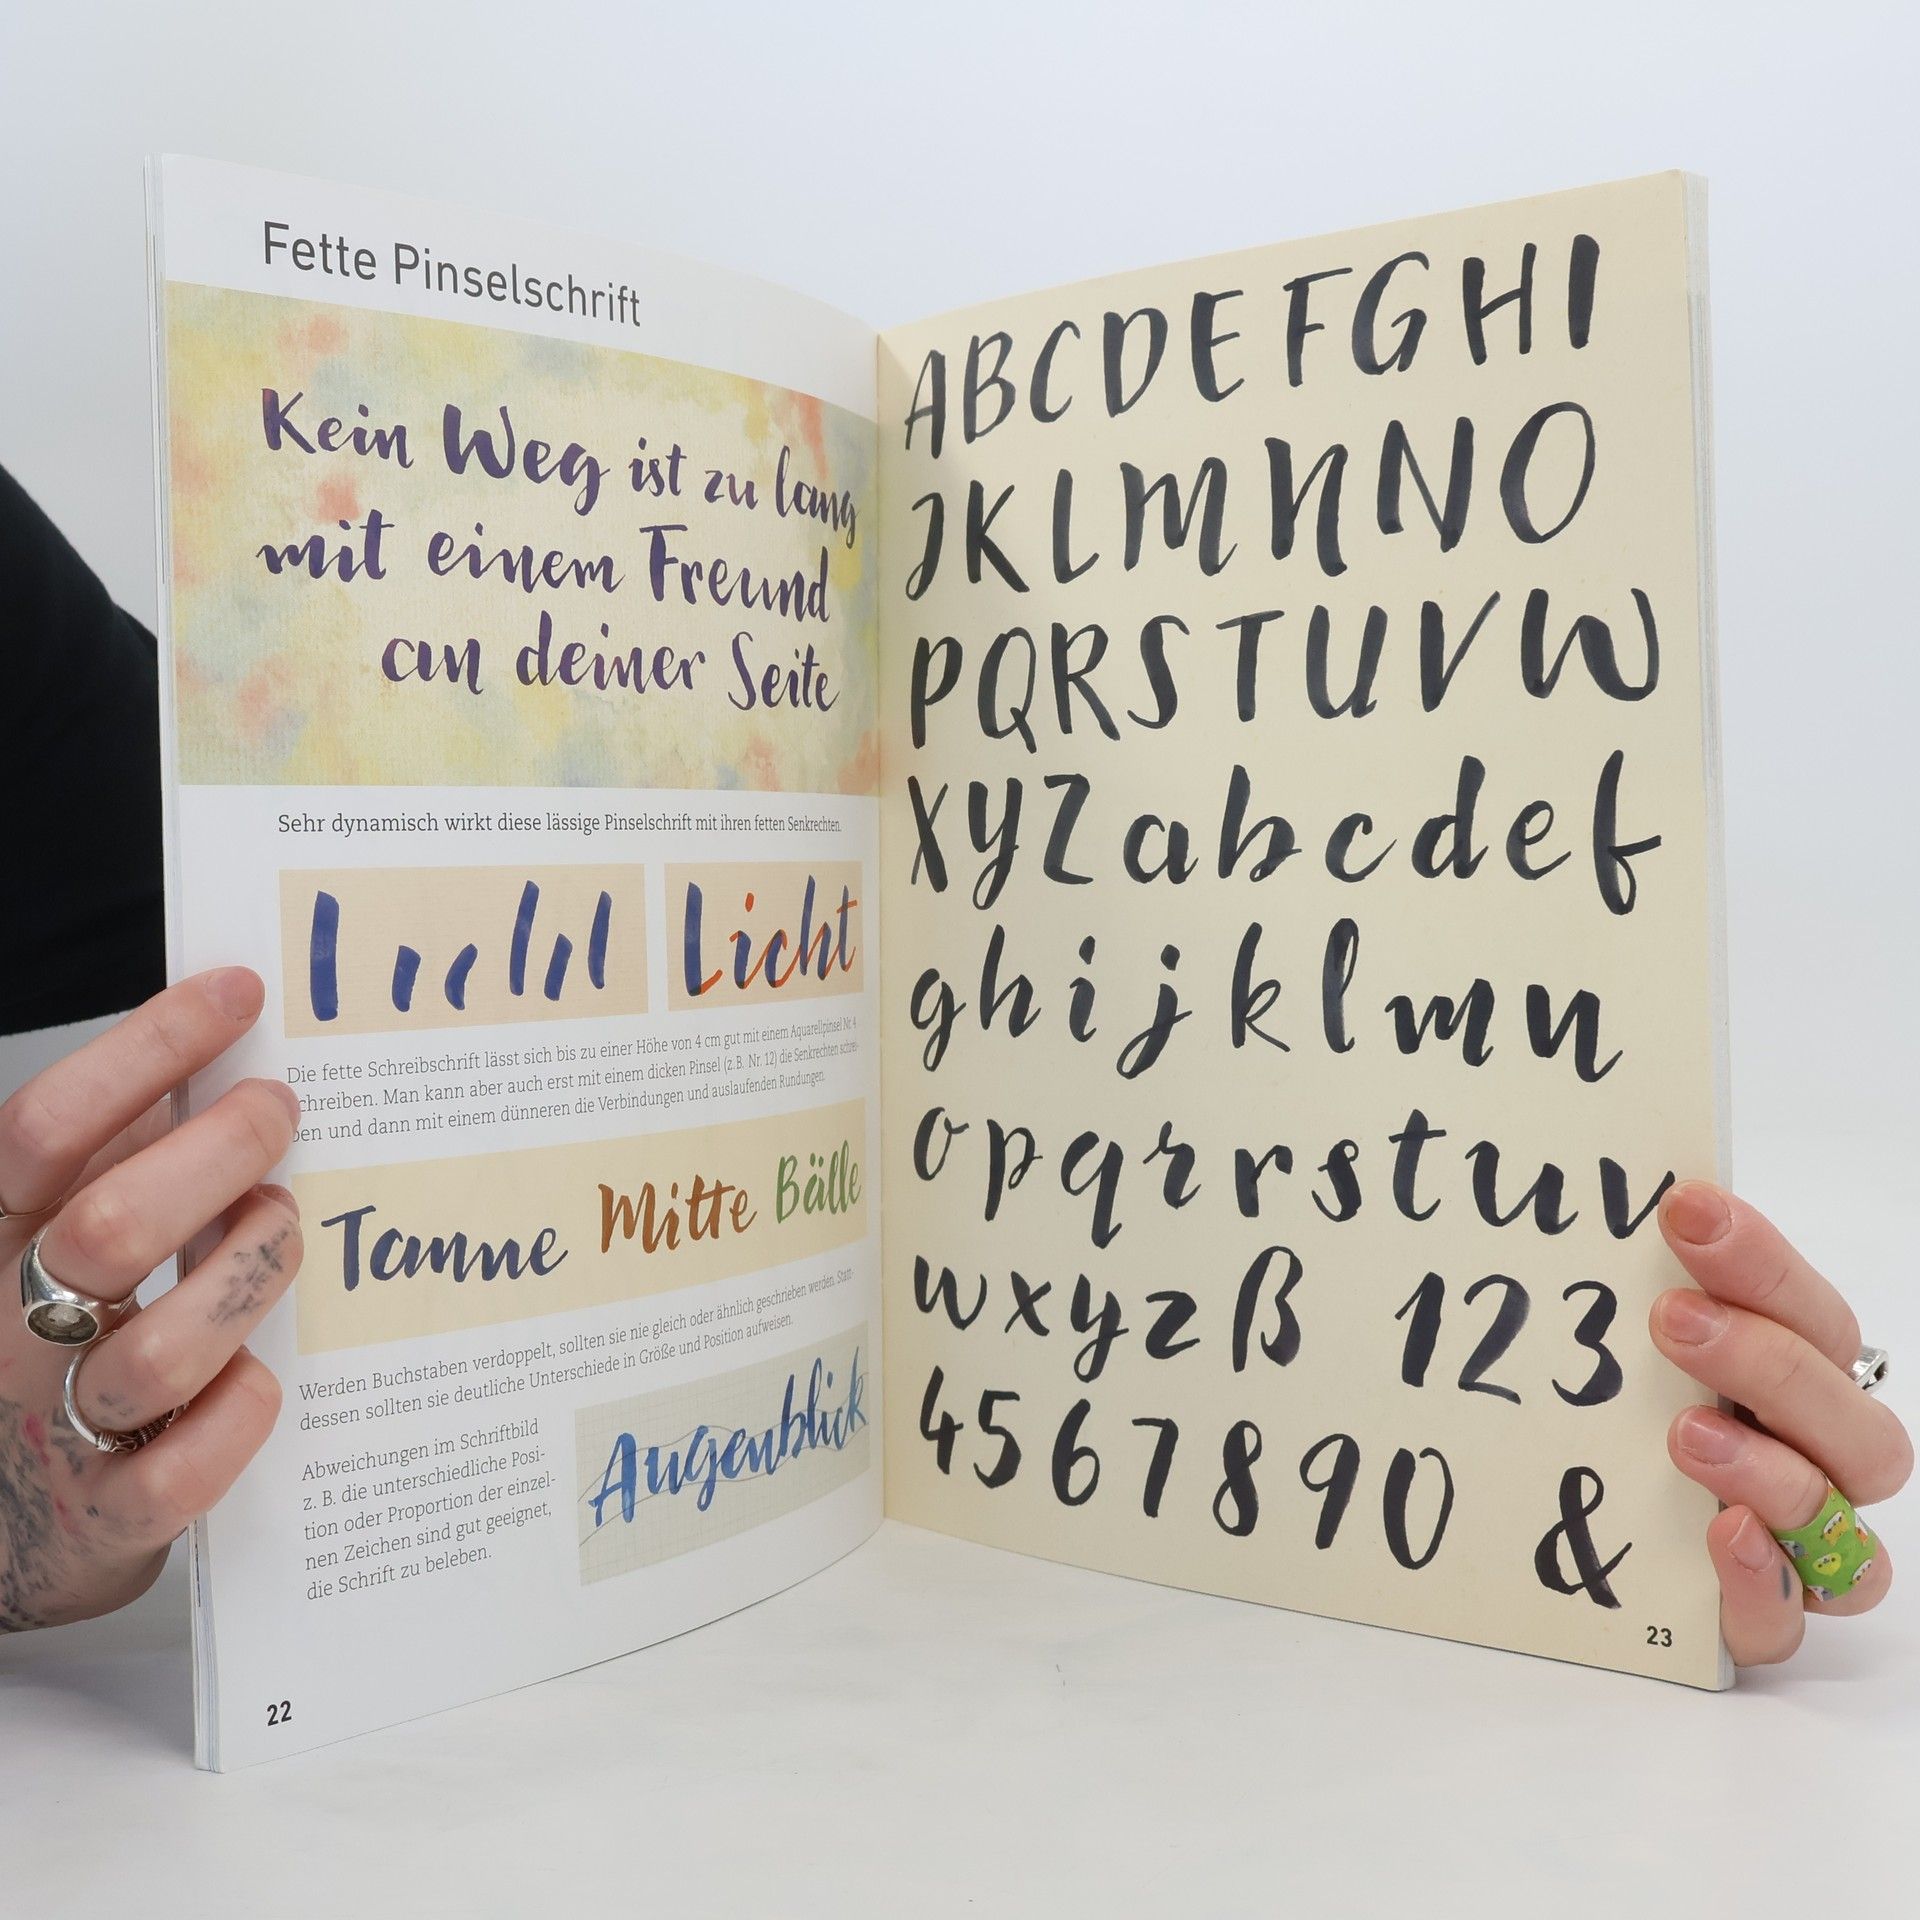 Fette Pinselschrift
Kein Weg ist zu lang
mit einem Freund
an deiner Seite
Sehr dynamisch wirkt diese lässige Pinselschrift mit ihren fetten Senkrechten.
Licht
Die fette Schreibschrift lässt sich bis zu einer Höhe von 4 cm gut mit einem Aquarellpinsel Nr. 4
schreiben. Man kann aber auch erst mit einem dicken Pinsel (z. B. Nr. 12) die Senkrechten schrei-
ben und dann mit einem dünneren die Verbindungen und auslaufenden Rundungen.
Tanne Mitte Bälle
Werden Buchstaben verdoppelt, sollten sie nie gleich oder ähnlich geschrieben werden. Statt-
dessen sollten sie deutliche Unterschiede in Größe und Position aufweisen.
Abweichungen im Schriftbild
z. B. die unterschiedliche Posi-
tion oder Proportion der einzel-
nen Zeichen sind gut geeignet,
die Schrift zu beleben.
Augenblick
22
A B C D E F G H I
J K L M N N O
P Q R S T U V W
X Y Z a b c d e f
g h i j k l m n
o p q r r s t u v
w x y z ß 1 2 3
4 5 6 7 8 9 0 &
23